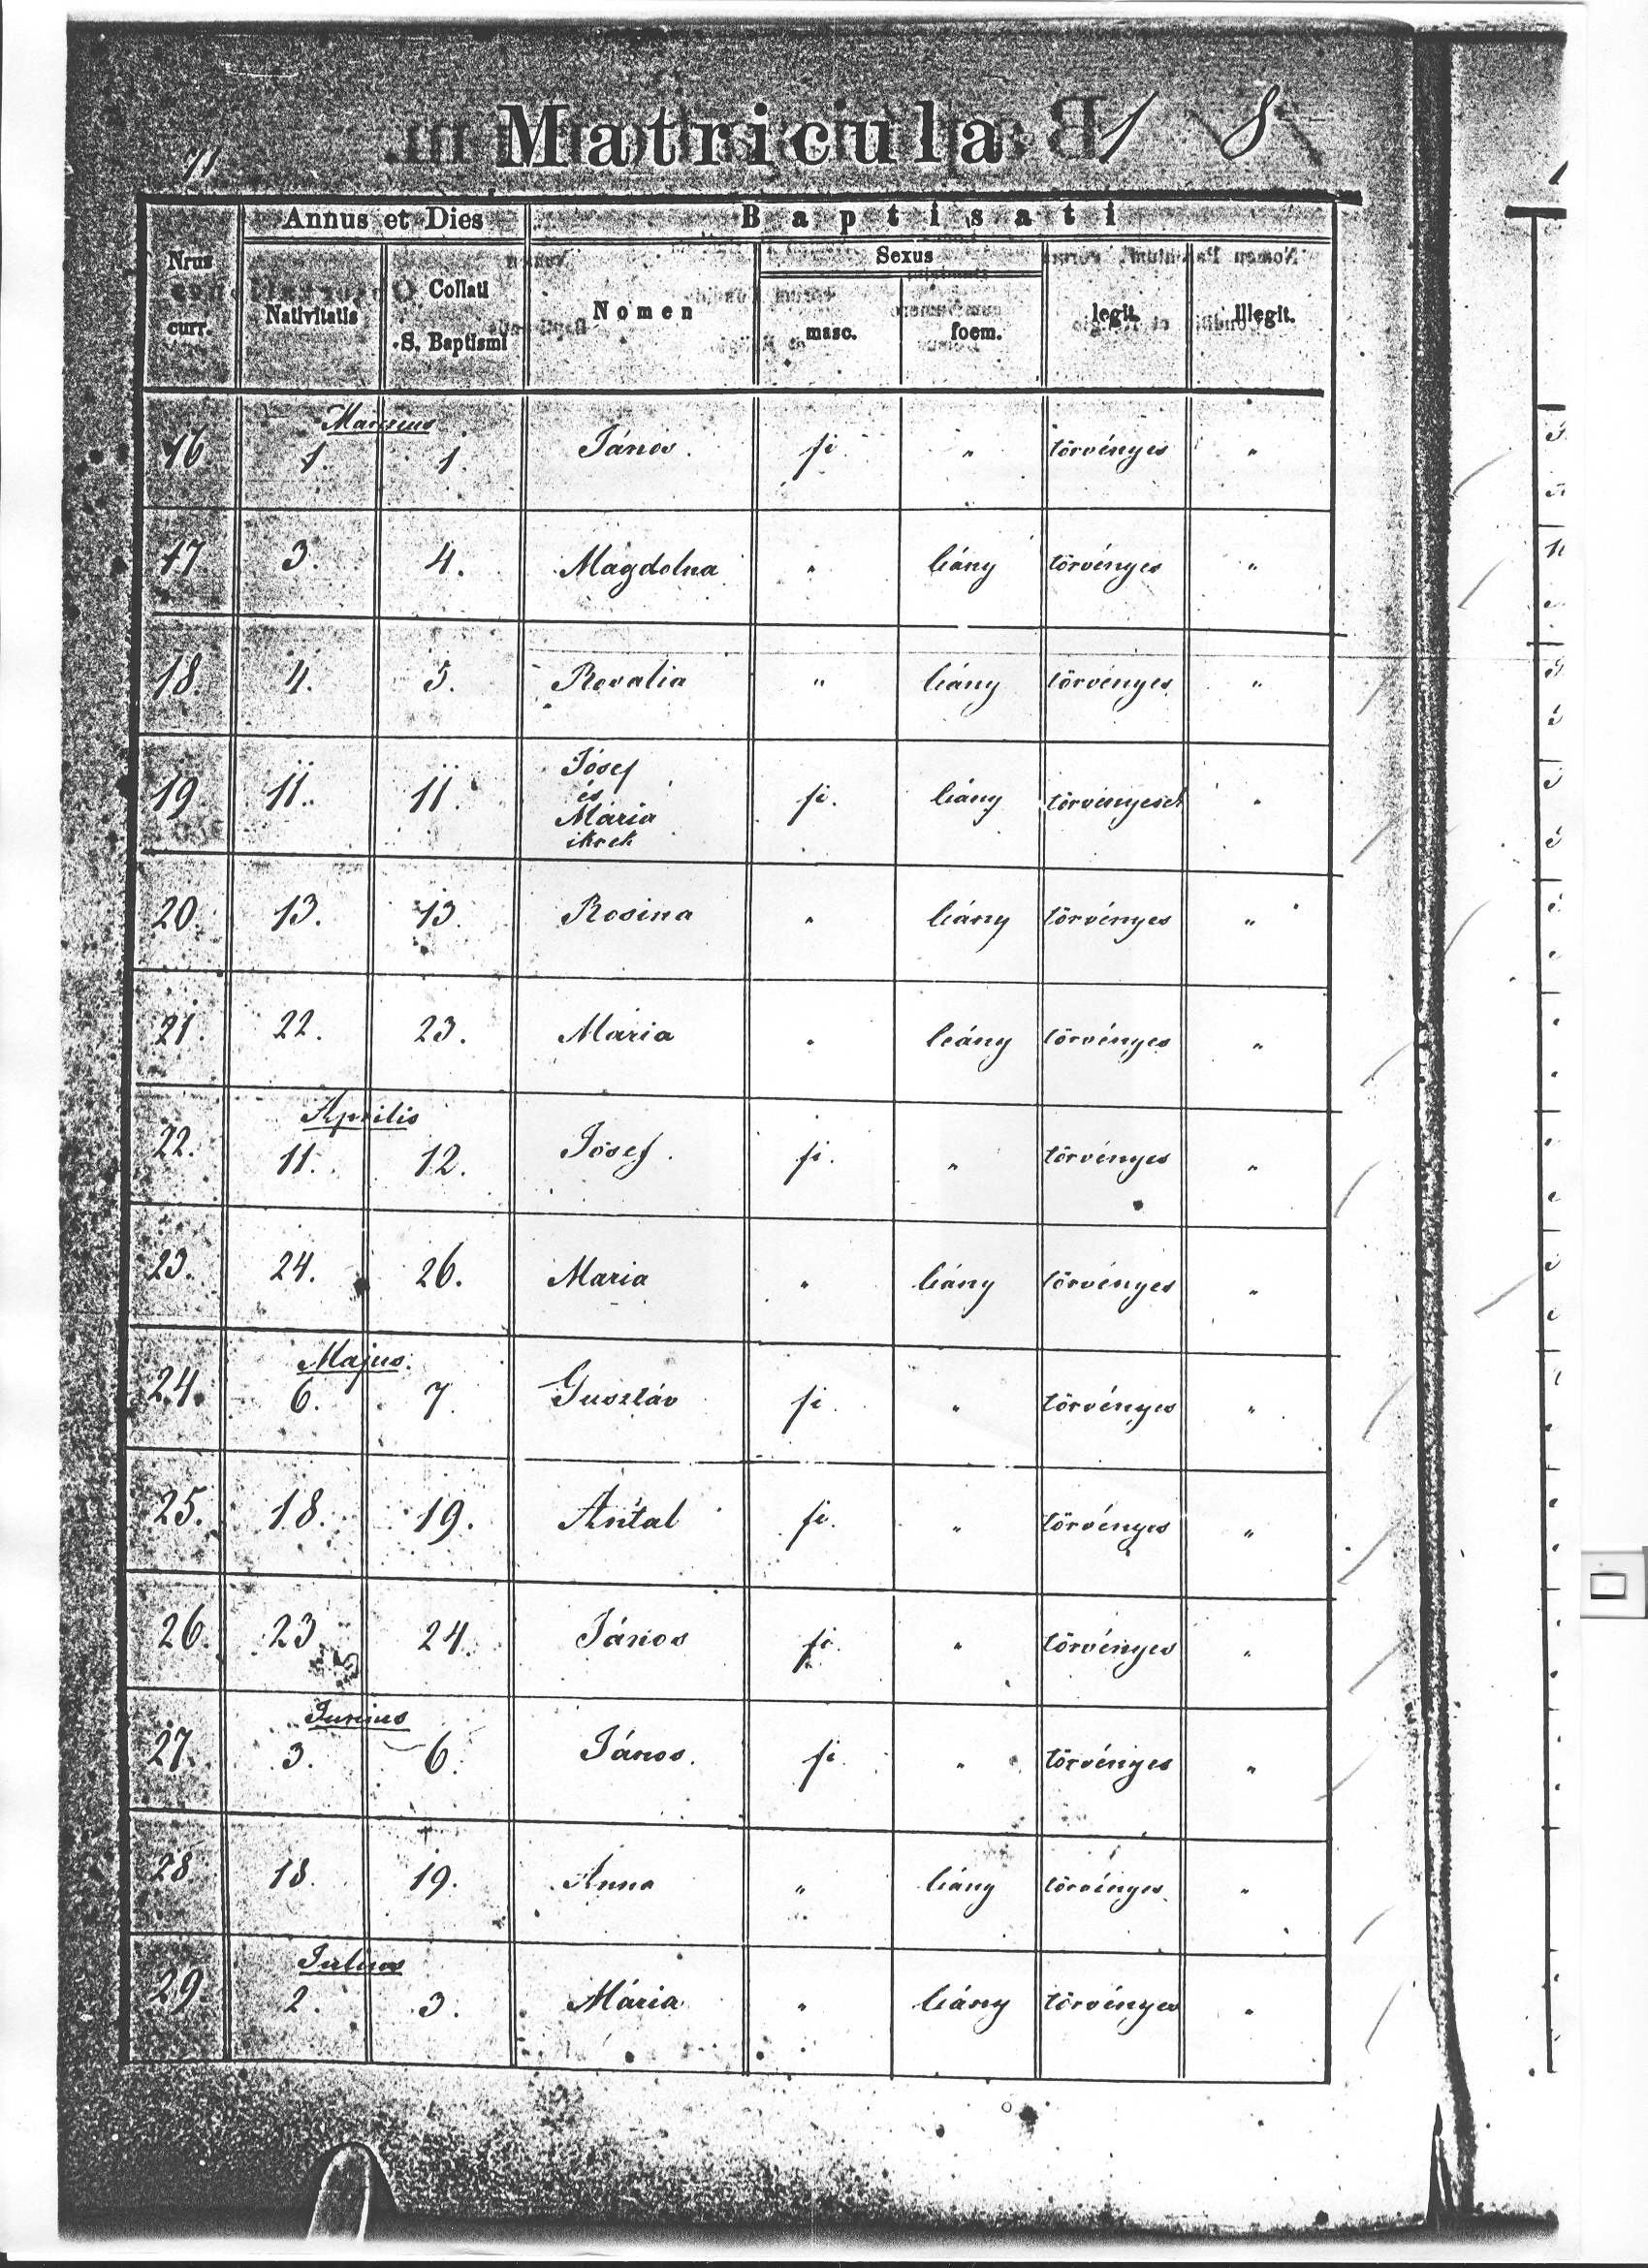 71 Matricula 1 8
Annus et Dies Baptisati
Nrus curr. Nativitatis Collati S. Baptismi Nomen Sexus masc. foem. legit. illegit.
Martius
16 1. 1. János. fi. „ törvényes „
17 3. 4. Magdolna „ leány törvényes „
18. 4. 5. Rosalia „ leány törvényes „
Jósef
és
19 11. 11. Mária fi. leány törvényesek „
ikrek
20 13. 13. Rosina „ leány törvényes „
21. 22. 23. Mária „ leány törvényes „
Aprilis
22. 11. 12. Jósef. fi. „ törvényes „
23. 24. 26. Maria „ leány törvényes „
Majus.
24. 6. 7. Gusztáv fi. „ törvényes „
25. 18. 19. Antal fi. „ törvényes „
26. 23 24. János fi. „ törvényes „
Junius
27. 3. 6. János. fi. „ törvényes „
28 18. 19. Anna „ leány törvényes „
Julius
29 2. 3. Mária „ leány törvényes „